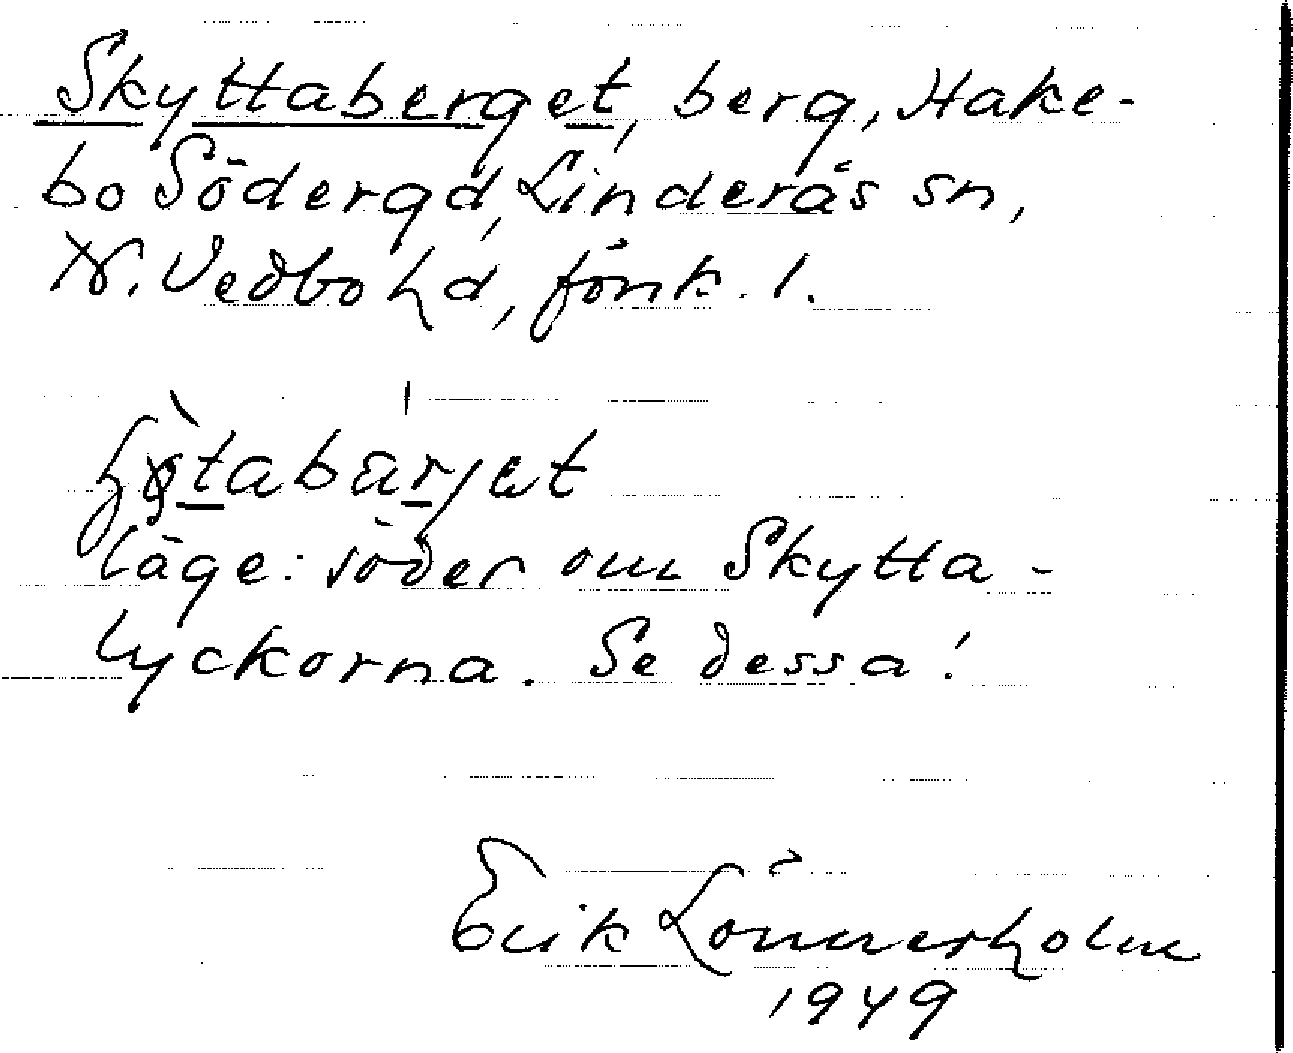 Skyttaberget, berg, Hake-
bo Södergd, Linderås sn,
N. Vedbo hd, Jönk. l.
läge: söder om Skytta-
lyckorna. Se dessa!
Erik Lönnerholm
1949